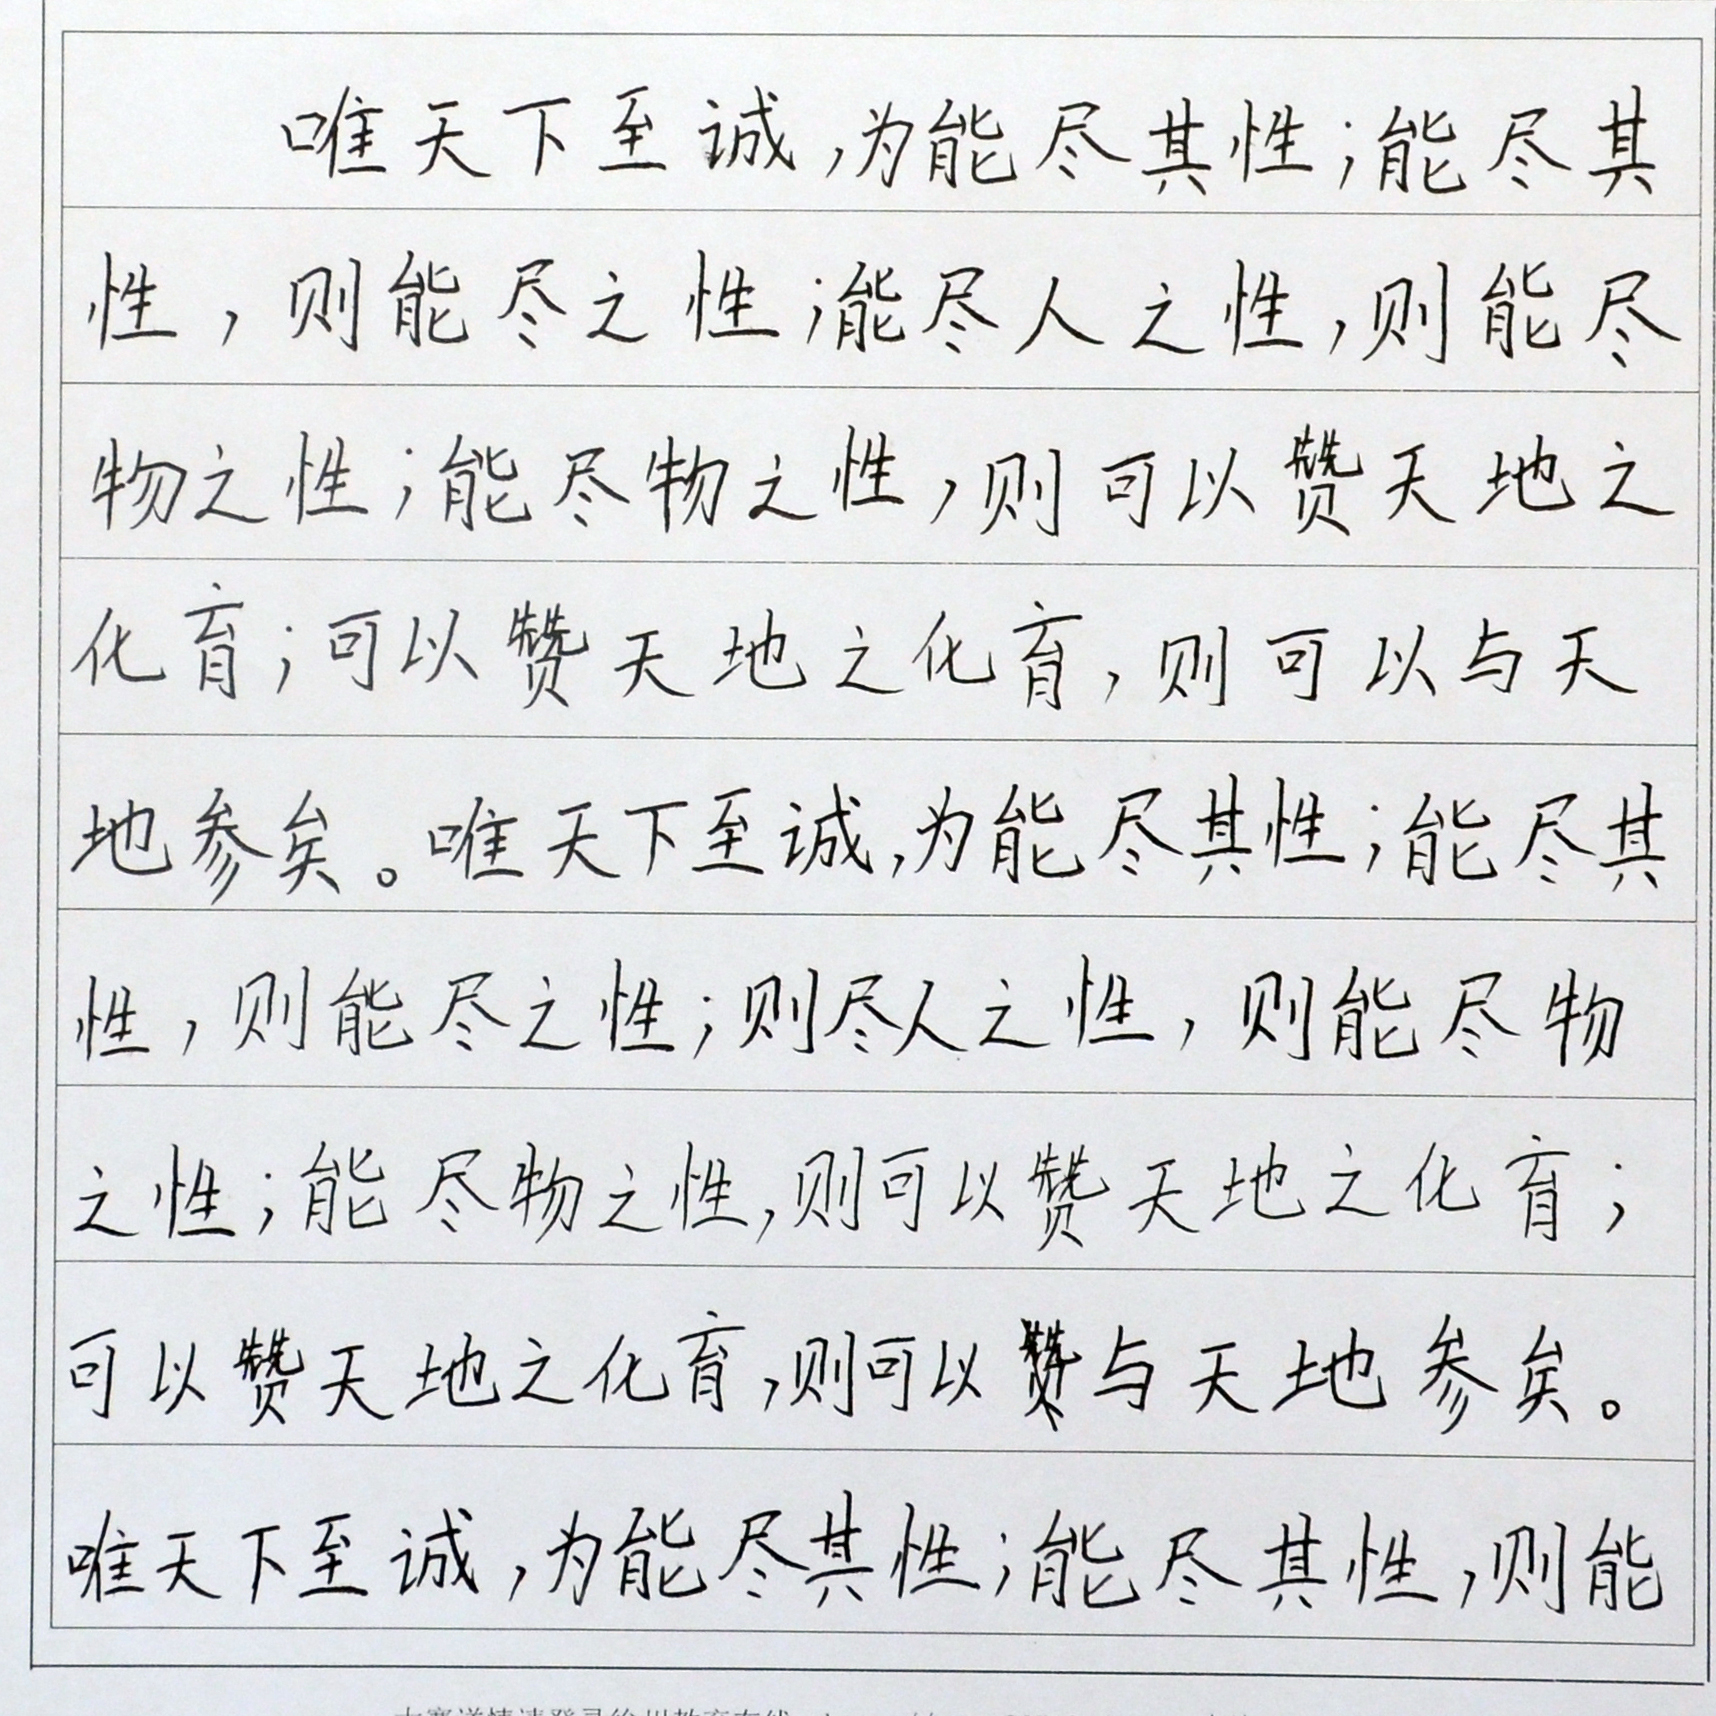 唯天下至诚,为能尽其性;能尽其
性,则能尽之性;能尽人之性,则能尽
物之性;能尽物之性,则可以赞天地之
化育;可以赞天地之化育,则可以与天
地参矣。唯天下至诚,为能尽其性;能尽其
性,则能尽之性;则尽人之性,则能尽物
之性;能尽物之性,则可以赞天地之化育;
可以赞天地之化育,则可以赞与天地参矣。
唯天下至诚,为能尽其性;能尽其性,则能